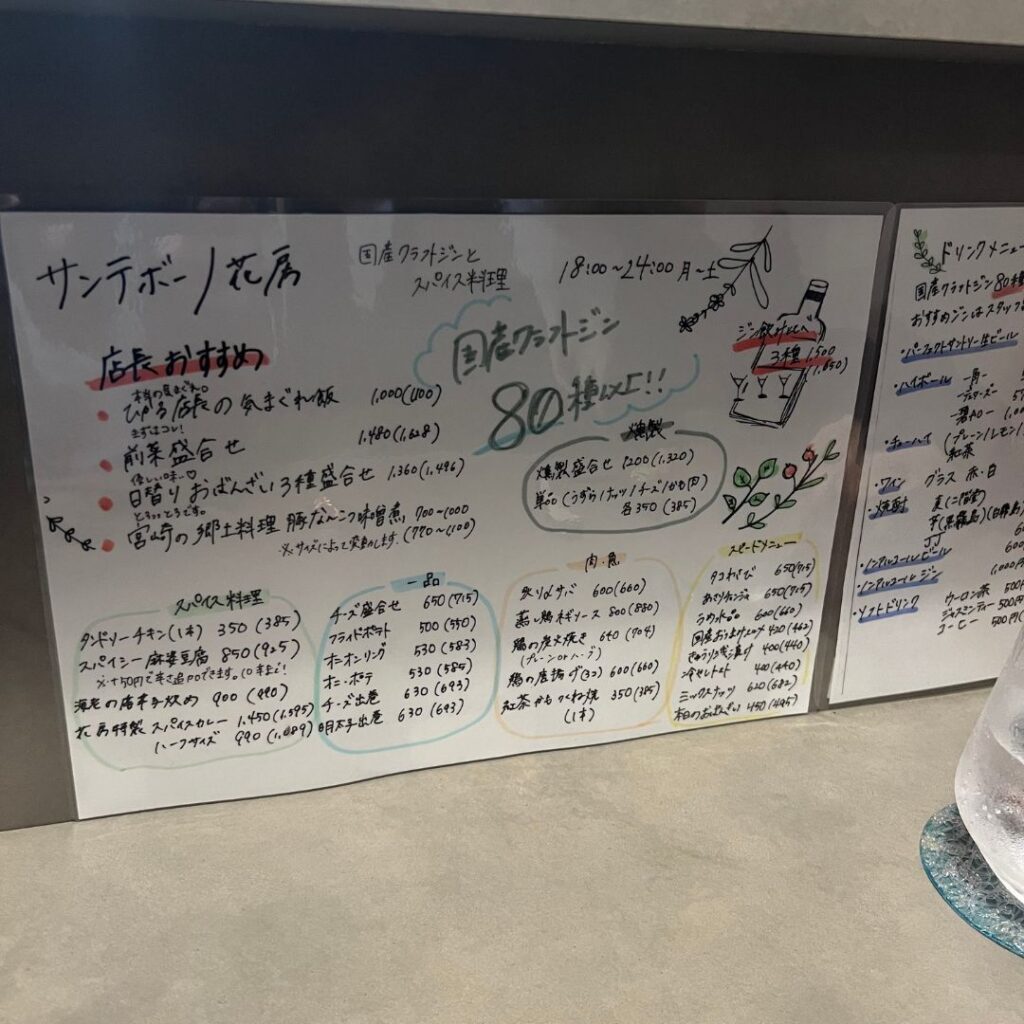 サンテボーノ花房
国産クラフトジンと
スパイス料理
18:00〜24:00 月〜土
国産クラフトジン
80種以上!!
ジン飲み比べ
3種 1,500
(1,650)
店長おすすめ
本日の気まぐれ。
ぴゅる店長の気まぐれ飯 1,000(1,100)
まずはコレ!
前菜盛合せ 1,480(1,628)
優しい味〜♡
日替り おばんざい3種盛合せ 1,360(1,496)
とろっとろです。
宮崎の郷土料理 豚なんこつ味噌煮 700〜1000
※サイズによって変動します。(770〜1,100)
燻製
燻製盛合せ 1200(1,320)
単品(うずら/ナッツ/チーズ/かも肉)
各350(385)
スパイス料理
タンドリーチキン(1本) 350(385)
スパイシー麻婆豆腐 850(925)
※+50円で辛さ追加できます。
海老の唐辛子炒め 900(990)
花房特製 スパイスカレー 1,450(1,595)
ハーフサイズ 990(1,089)
一品
チーズ盛合せ 650(715)
フライドポテト 500(550)
オニオンリング 530(583)
オニ・ポテ 530(585)
チーズ出巻 630(693)
明太子出巻 630(693)
肉・魚
炙り〆サバ 600(660)
蒸し鶏ネギソース 800(880)
鶏の炭火焼き 640(704)
(プレーン or ハーブ)
鶏の唐揚げ(3コ) 600(660)
紅茶かもつくね焼 350(385)
(1本)
スピードメニュー
タコわさび 650(715)
あさり 650(715)
うめ水晶 600(660)
国産 420(462)
きゅうり漬け 400(440)
冷やしトマト 400(440)
ミックスナッツ 620(682)
本日のおばんざい 450(495)
ドリンクメニュー
国産クラフトジン80種
おすすめジンはスタッフ
・パーフェクトサントリー生ビール
・ハイボール
・チューハイ (プレーン/レモン/
紅茶
・ワイン グラス 赤・白
・焼酎 麦(二階堂)
芋(黒霧島)(白霧島)
・ノンアルコールビール
・ノンアルコールジン 1,000円
・ソフトドリンク ウーロン茶 500円
ジャスミンティー 500円
コーヒー 500円